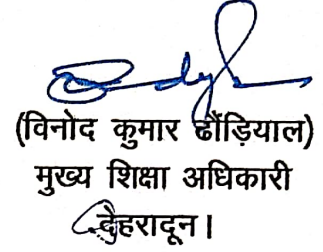 (विनोद कुमार ढौंड़ियाल)
मुख्य शिक्षा अधिकारी
देहरादून।